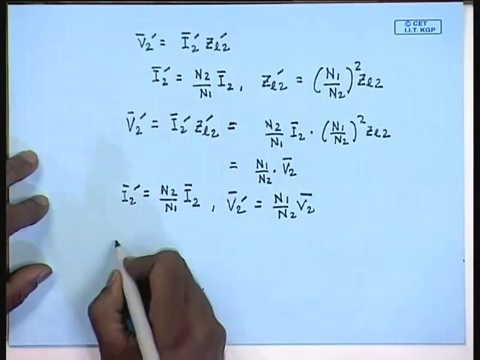 © CET
I.I.T. KGP
V̄₂′ = Ī₂′ Zℓ₂
Ī₂′ = N₂/N₁ Ī₂ , Zℓ₂′ = (N₁/N₂)² Zℓ₂
V̄₂′ = Ī₂′ Zℓ₂′ = N₂/N₁ Ī₂ · (N₁/N₂)² Zℓ₂
= N₁/N₂ · V̄₂
Ī₂′ = N₂/N₁ Ī₂ , V̄₂′ = N₁/N₂ V̄₂